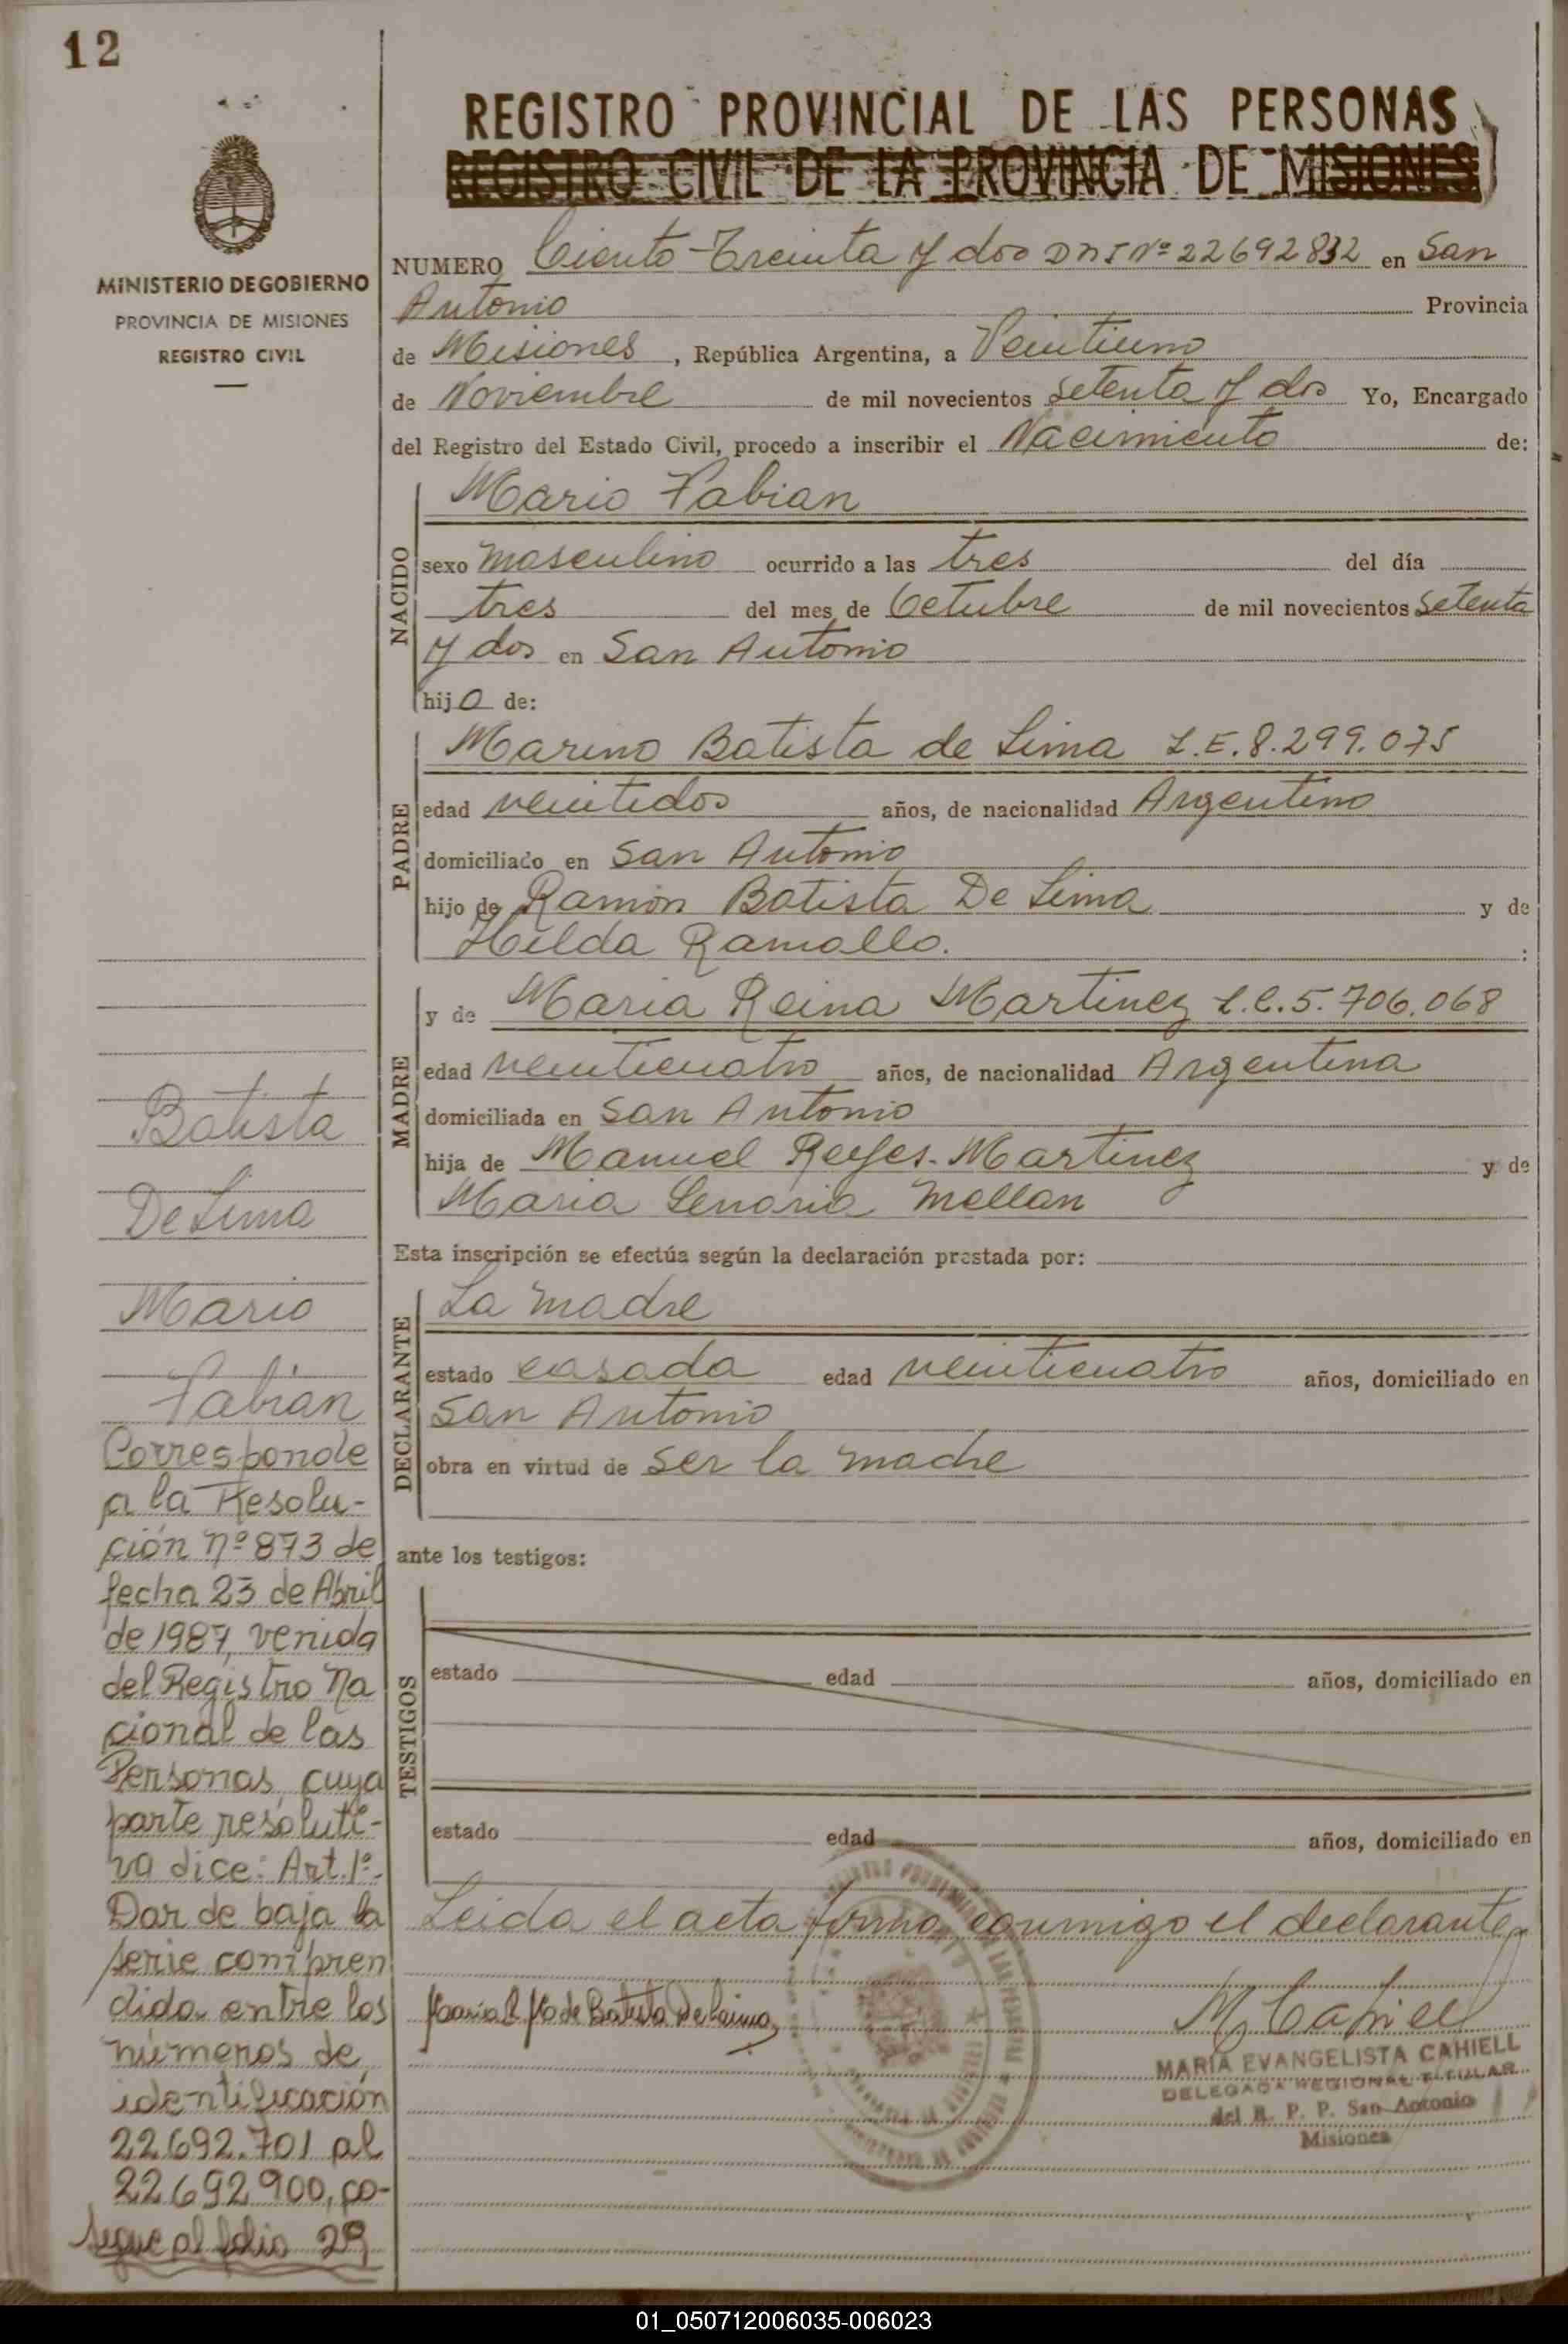 12
REGISTRO PROVINCIAL DE LAS PERSONAS
REGISTRO CIVIL DE LA PROVINCIA DE MISIONES
MINISTERIO DE GOBIERNO
PROVINCIA DE MISIONES
REGISTRO CIVIL
NUMERO Ciento Treinta y dos DNI Nº 22692832 en San
Antonio Provincia
de Misiones, República Argentina, a Veintiuno
de Noviembre de mil novecientos setenta y dos Yo, Encargado
del Registro del Estado Civil, procedo a inscribir el Nacimiento de:
NACIDO
Mario Fabian
sexo masculino ocurrido a las tres del día
tres del mes de Octubre de mil novecientos setenta
y dos en San Antonio
hijo de:
PADRE
Marino Batista de Lima L.E. 8.299.075
edad veintidos años, de nacionalidad Argentino
domiciliado en San Antonio
hijo de Ramón Batista De Lima y de
Hilda Ramallo.
MADRE
y de Maria Reina Martinez L.C. 5.706.068
edad veinticuatro años, de nacionalidad Argentina
domiciliada en San Antonio
hija de Manuel Reyes Martinez y de
Maria Mellan
Esta inscripción se efectúa según la declaración prestada por:
DECLARANTE
La madre
estado casada edad veinticuatro años, domiciliado en
San Antonio
obra en virtud de ser la madre
ante los testigos:
TESTIGOS
estado edad años, domiciliado en
estado edad años, domiciliado en
Leida el acta firma conmigo el declarante
Maria R. de Batista De Laima
M Cahiell
MARIA EVANGELISTA CAHIELL
DELEGADA REGIONAL TITULAR
del R. P. P. San Antonio
Misiones
Batista
De Lima
Mario
Fabian
Corresponde
a la Resolu-
ción nº 873 de
fecha 23 de Abril
de 1987, venida
del Registro Na
cional de las
Personas, cuya
parte resoluti-
va dice: Art. 1º.
Dar de baja la
serie compren
dida entre los
números de
identificación
22692.701 al
22692900, co-
sigue al folio 29
01_050712006035-006023